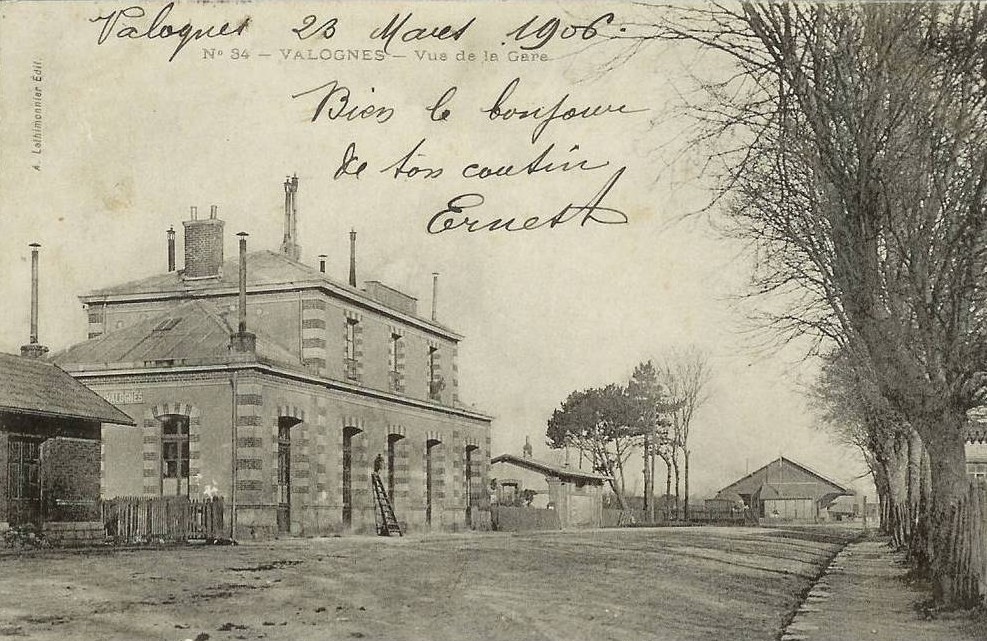 Valognes 23 Mars 1906.
Nº 34 — VALOGNES — Vue de la Gare
Bien le bonjour
de ton coutin
Ernest
A. Lathimonnier Édit.
VALOGNES